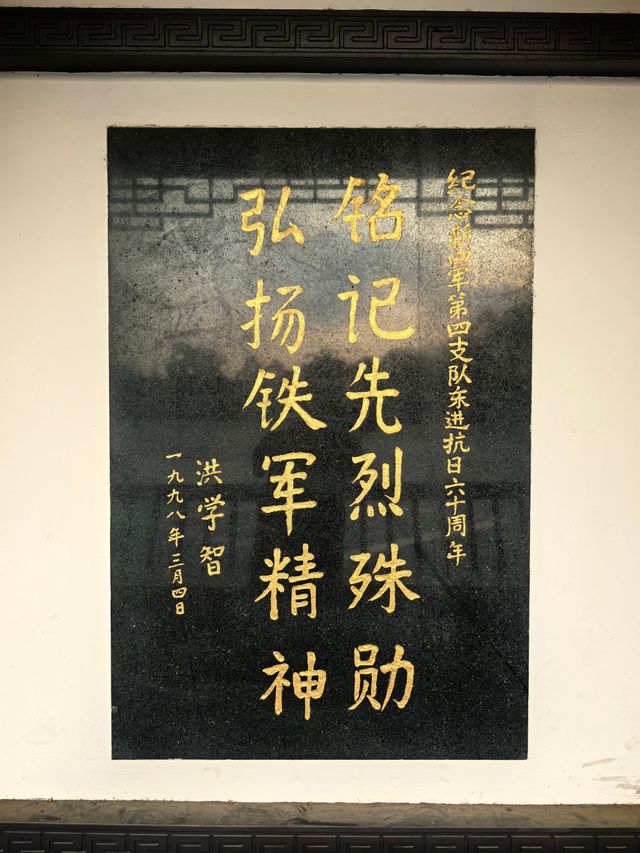 纪念新四军第四支队东进抗日六十周年
铭记先烈殊勋
弘扬铁军精神
洪学智
一九九八年三月四日